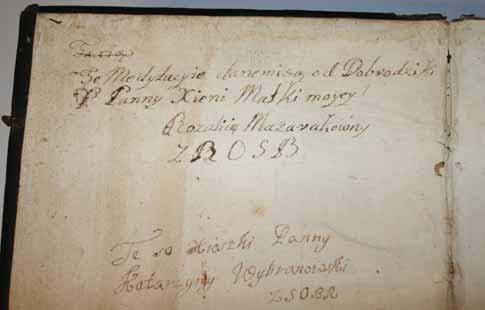 Te Medytacyie dane mi są od Dobrodziki
Panny Xieni Matki moyey
Rozalię Mazarakowny
Z R O S B
Te so xiąszki Panny
Katarzyny Wybranowski
ZSOBR